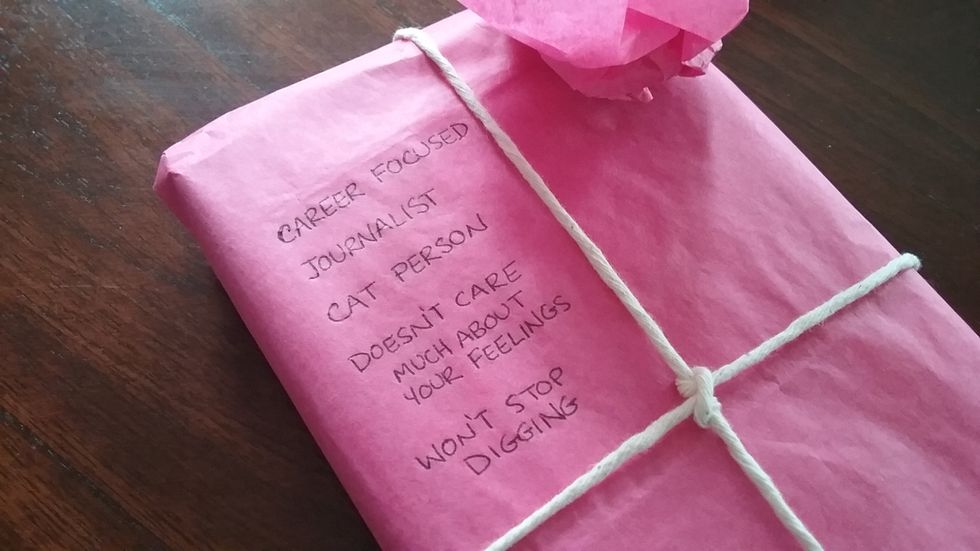 CAREER FOCUSED
JOURNALIST
CAT PERSON
DOESN'T CARE
MUCH ABOUT
YOUR FEELINGS
WON'T STOP
DIGGING